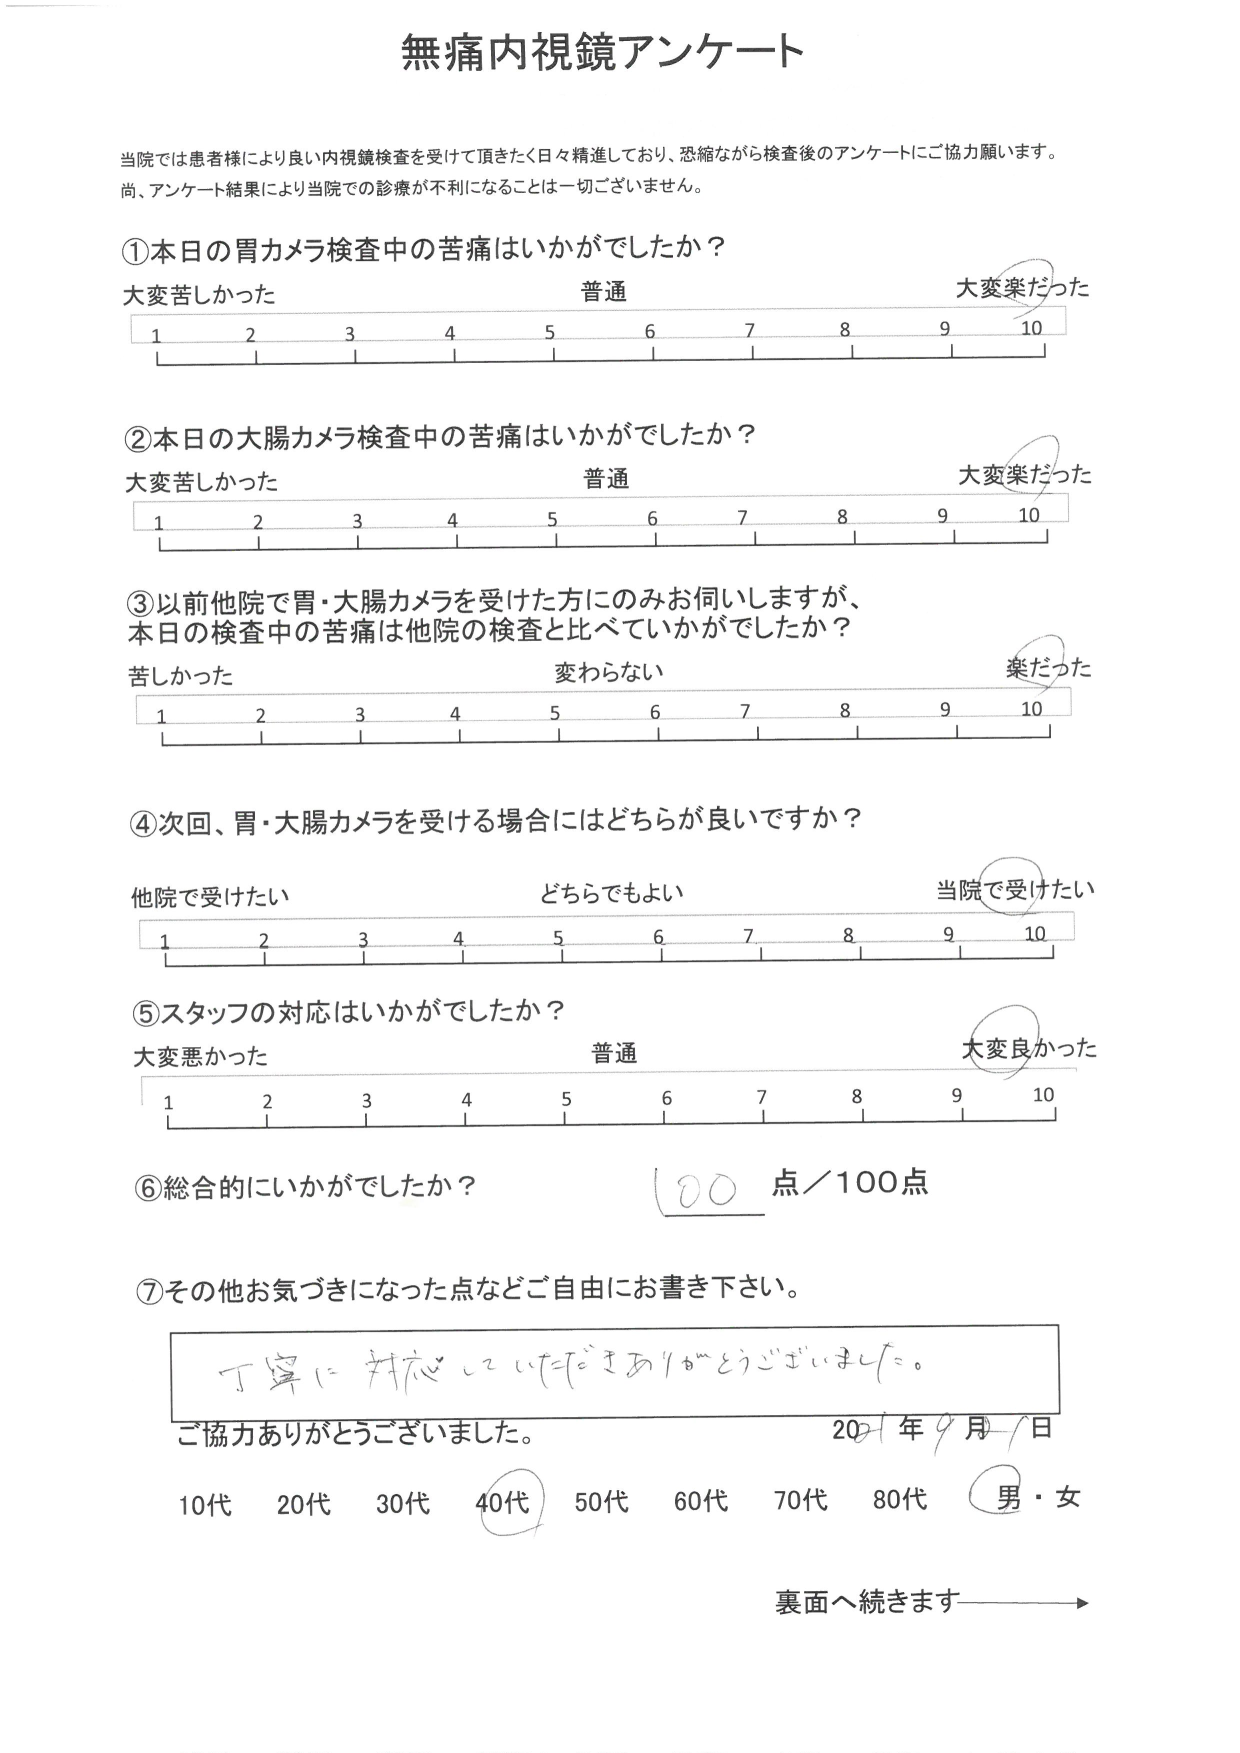 無痛内視鏡アンケート
当院では患者様により良い内視鏡検査を受けて頂きたく日々精進しており、恐縮ながら検査後のアンケートにご協力願います。
尚、アンケート結果により当院での診療が不利になることは一切ございません。
①本日の胃カメラ検査中の苦痛はいかがでしたか？
大変苦しかった 普通 大変楽だった
1 2 3 4 5 6 7 8 9 10
②本日の大腸カメラ検査中の苦痛はいかがでしたか？
大変苦しかった 普通 大変楽だった
1 2 3 4 5 6 7 8 9 10
③以前他院で胃・大腸カメラを受けた方にのみお伺いしますが、
本日の検査中の苦痛は他院の検査と比べていかがでしたか？
苦しかった 変わらない 楽だった
1 2 3 4 5 6 7 8 9 10
④次回、胃・大腸カメラを受ける場合にはどちらが良いですか？
他院で受けたい どちらでもよい 当院で受けたい
1 2 3 4 5 6 7 8 9 10
⑤スタッフの対応はいかがでしたか？
大変悪かった 普通 大変良かった
1 2 3 4 5 6 7 8 9 10
⑥総合的にいかがでしたか？ 100 点／100点
⑦その他お気づきになった点などご自由にお書き下さい。
丁寧に対応していただきありがとうございました。
ご協力ありがとうございました。 2021年9月 日
10代 20代 30代 40代 50代 60代 70代 80代 男・女
裏面へ続きます